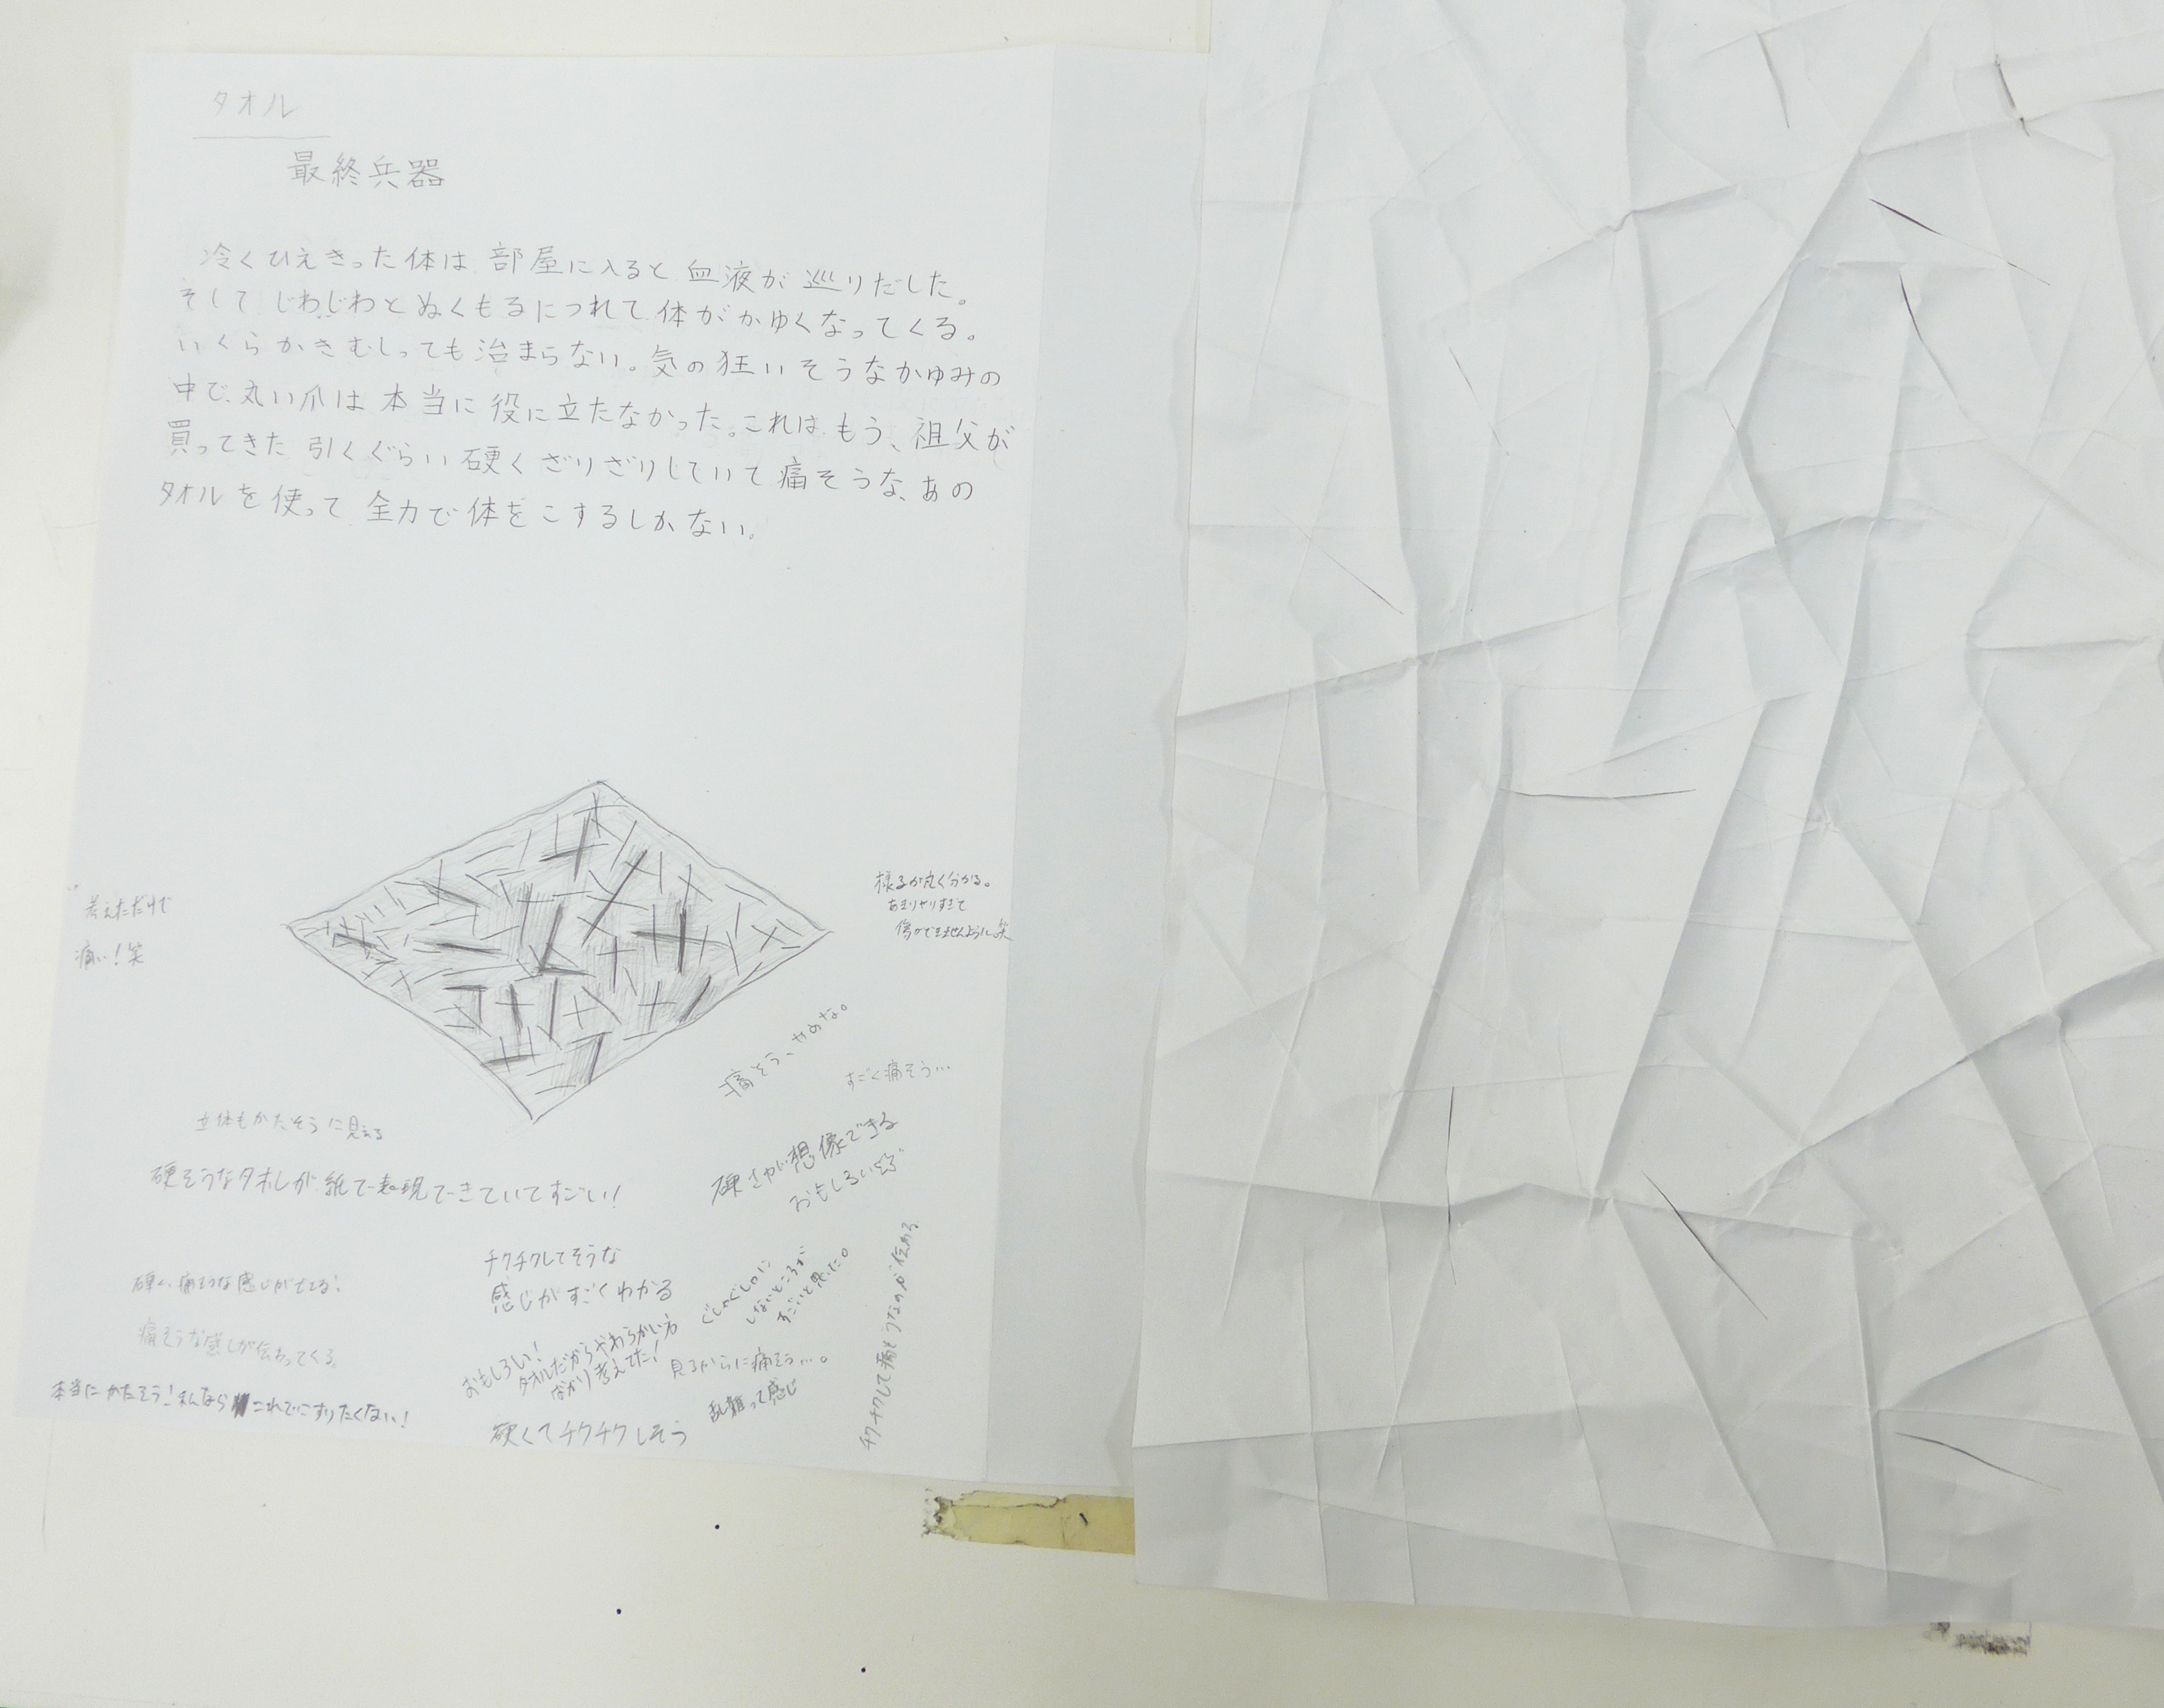 タオル
最終兵器
冷くひえきった体は部屋に入ると血液が巡りだした。
そしてじわじわとぬくもるにつれて体がかゆくなってくる。
いくらかきむしっても治まらない。気の狂いそうなかゆみの
中で丸い爪は本当に役に立たなかった。これはもう、祖父が
買ってきた引くぐらい硬くざりざりしていて痛そうな、あの
タオルを使って全力で体をこするしかない。
考えただけで
痛い!笑
あまりやりすぎて
傷ができませんように笑
痛そう、やめな。
すごく痛そう…
立体もかたそうに見える
硬そうなタオルが紙で表現できていてすごい!
硬さが想像できる
おもしろい
チクチクしてそうな
感じがすごくわかる
ぐしゃぐしゃに
しないところが
すごいと思った。
硬く、痛そうな感じがでてる!
痛そうな感じが伝わってくる。
本当にかたそう!私ならこれでこすりたくない!
おもしろい!
タオルだからやわらかい方
ばかり考えてた!
見るからに痛そう…。
硬くてチクチクしそう
チクチクして痛そうなのが伝わる